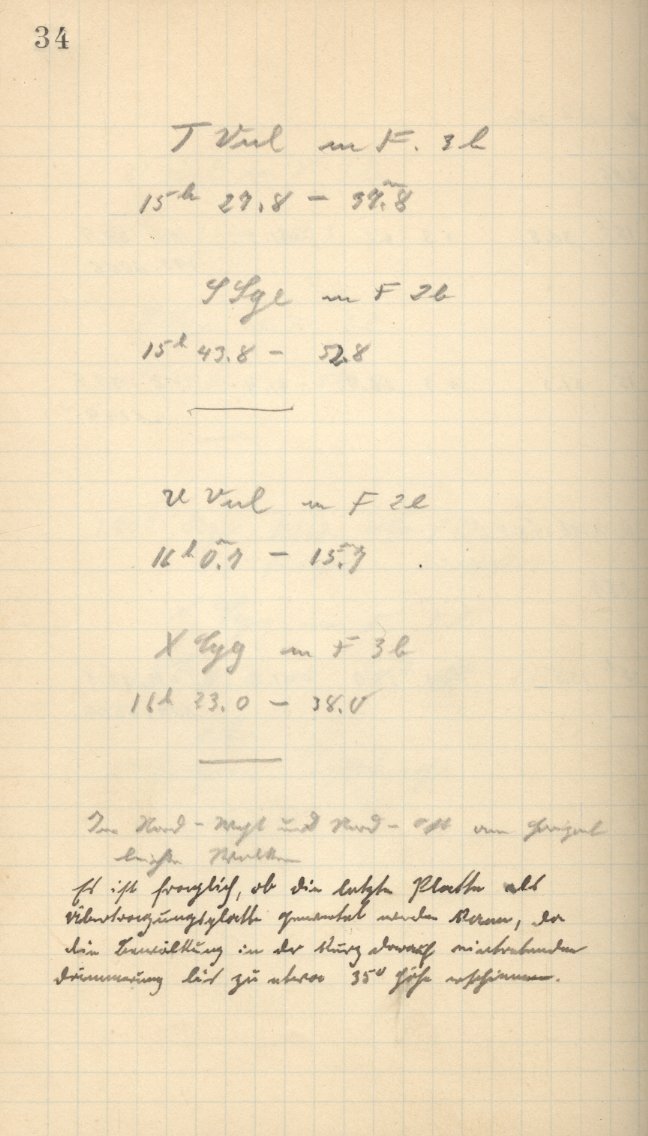 34
T Vul in F. 3b
15h 27.8 – 37.8m
S Sge in F 2b
15h 43.8 – 52.8
U Vul in F 2b
16h 0.7m – 15.7m
X Cyg in F 3b
16h 23.0 – 38.0
Im Nord-West und Nord-Ost am Horizont
leichte Wolken
Es ist fraglich, ob die letzte Platte als
Übertragungsplatte gewertet werden kann, da
die Bewölkung in der kurz darauf eintretenden
Dämmerung bis zu etwa 35° Höhe erschienen.